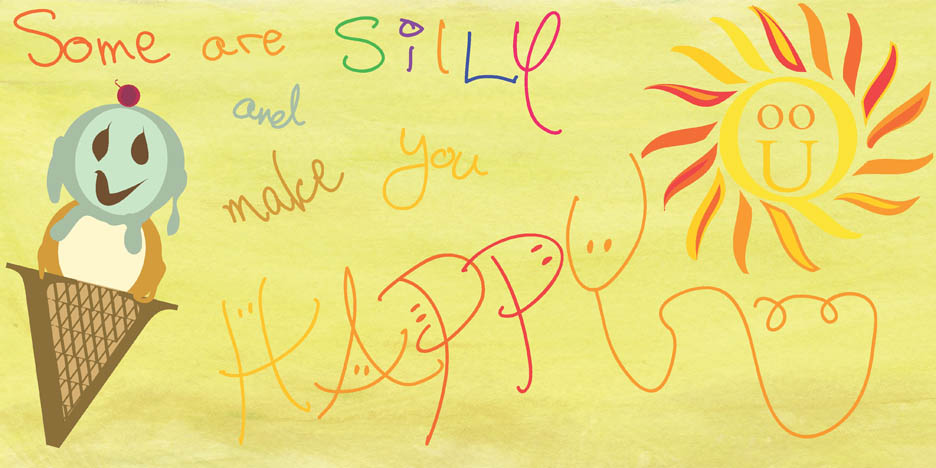 Some are SiLLy
and
make you
HAPPy